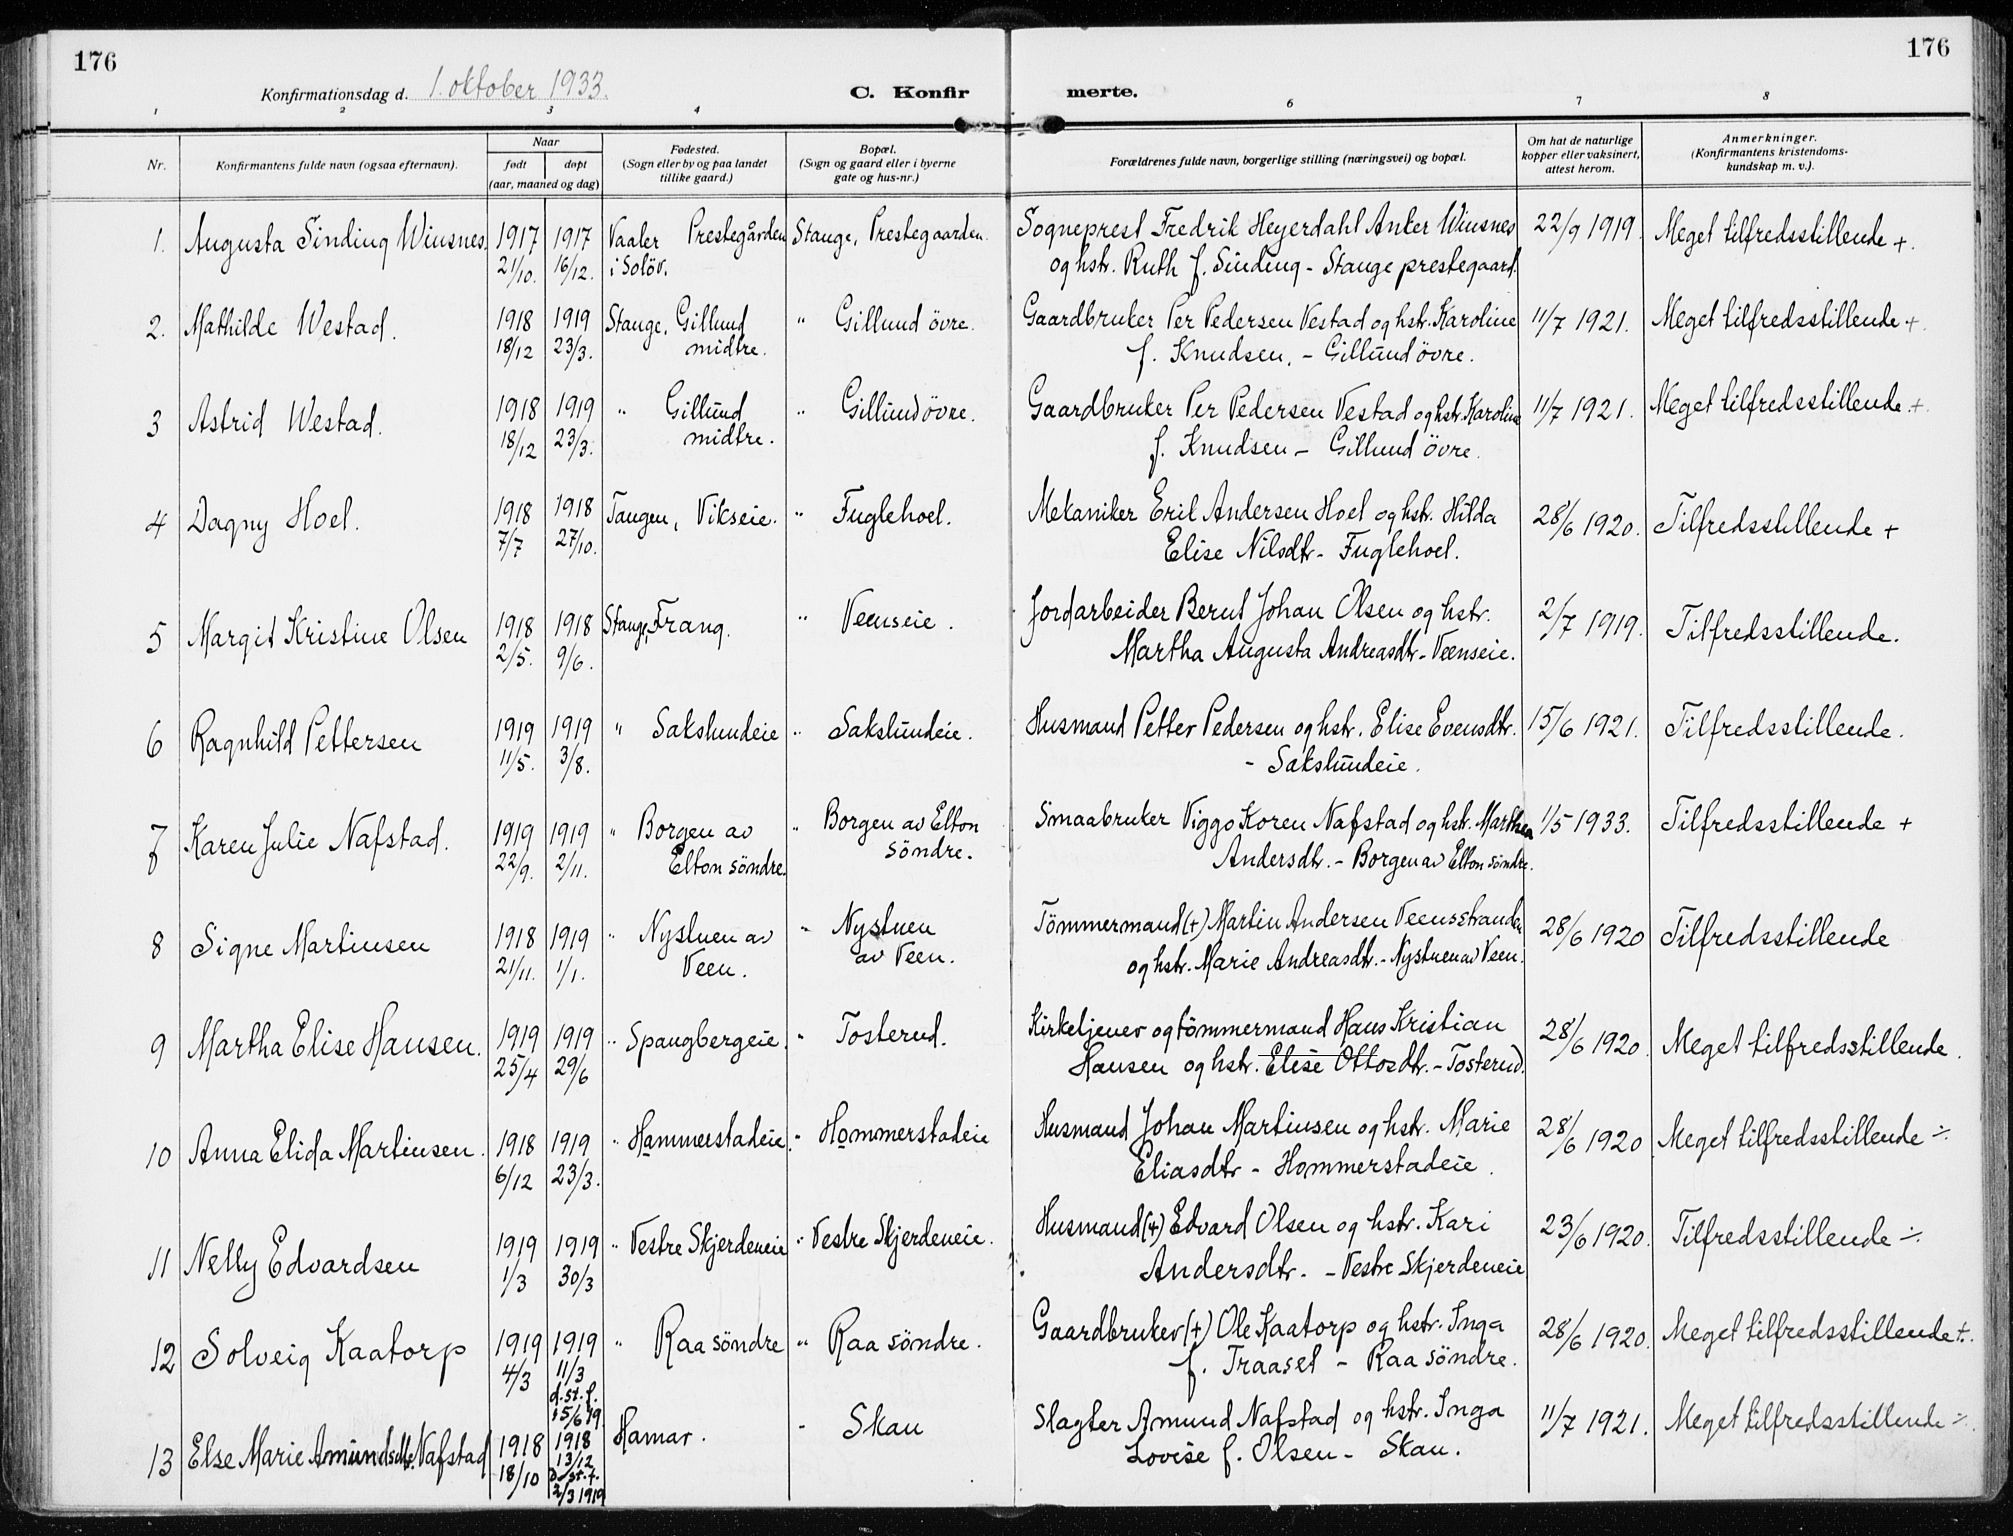 176
176
Konfirmationsdag d. 1. oktober 1933.
C. Konfir
merte.
1 2 3 4 6 7 8
Nr.
Konfirmantens fulde navn (ogsaa efternavn).
Naar
født
døpt
(aar, maaned og dag)
Fødested.
(Sogn eller by og paa landet
tillike gaard.)
Bopæl.
(Sogn og gaard eller i byerne
gate og hus-nr.)
Forældrenes fulde navn, borgerlige stilling (næringsvei) og bopæl.
Om hat de naturlige
kopper eller vaksinert,
attest herom.
Anmerkninger.
(Konfirmantens kristendoms-
kundskap m. v.).
1. Augusta Sinding Winsnes. 1917 1917 Vaaler Prestegården Stange, Prestegaarden. Sogneprest Fredrik Heyerdahl Anker Winsnes 22/9 1919. Meget tilfredsstillende +.
21/10. 16/12. i Solör. og hstr. Ruth f. Sinding - Stange prestegaard.
2. Mathilde Westad. 1918 1919 Stange, Gillund " Gillund övre. Gaardbruker Per Pedersen Vestad og hstr. Karoline 11/7 1921. Meget tilfredsstillende +.
18/12 23/3. midtre. f. Knudsen. - Gillund övre.
3 Astrid Westad. 1918 1919 " Gillund " Gillund övre. Gaardbruker Per Pedersen Vestad og hstr. Karoline 11/7 1921. Meget tilfredsstillende. +
18/12 23/3. midtre. f. Knudsen - Gillund övre.
4 Dagny Hoel. 1918 1918 Tangen, Vikseie. " Fuglehoel. Mekaniker Erik Andersen Hoel og hstr. Hilda 28/6 1920. Tilfredsstillende +
7/7 27/10. Elise Nilsdtr - Fuglehoel.
5 Margit Kristine Olsen 1918 1918 Stange, Frang. " Veenseie. Jordarbeider Bernt Johan Olsen og hstr. 2/7 1919. Tilfredsstillende.
2/5. 9/6. Martha Augusta Andreasdtr - Veenseie.
6 Ragnhild Pettersen 1919 1919 " Sakslundeie " Sakslundeie. Husmand Petter Pedersen og hstr. Elise Evensdtr. 15/6 1921. Tilfredsstillende.
11/5. 3/8. - Sakslundeie.
7 Karen Julie Nafstad. 1919 1919 " Borgen av " Borgen av Elton Smaabruker Viggo Koren Nafstad og hstr. Marthea 1/5 1933. Tilfredsstillende +
22/9. 2/11. Elton söndre. söndre. Andersdtr. - Borgen av Elton söndre.
8 Signe Martinsen 1918 1919 " Nystuen av " Nystuen Tömmermand (+) Martin Andersen Veensstranden 28/6 1920 Tilfredsstillende
21/11. 1/1. Veen. av Veen. og hstr. Marie Andreasdtr. - Nystuen av Veen.
9 Martha Elise Hansen. 1919 1919 " Spangbergeie. " Tosterud. Kirketjener og tömmermand Hans Kristian 28/6 1920. Meget tilfredsstillende.
25/4 29/6 Hansen og hstr. Elise Ottosdtr. - Tosterud.
10 Anna Elida Martinsen. 1918 1919 " Hommerstadeie. " Hommerstadeie Husmand Johan Martinsen og hstr. Marie 28/6 1920 Meget tilfredsstillende ÷
6/12 23/3. Eliasdtr - Hommerstadeie.
11 Nelly Edvardsen 1919 1919 " Vestre Skjerdeneie " Vestre Skjerdeneie. Husmand (+) Edvard Olsen og hstr. Kari 23/6 1920. Tilfredsstillende ÷
1/3 30/3 Andersdtr. - Vestre Skjerdeneie
12 Solveig Kaatorp 1919 1919 " Raa söndre " Raa söndre. Gaardbruker (+) Ole Kaatorp og hstr. Inga 28/6 1920. Meget tilfredsstillende +.
4/3 11/3 f. Traaset - Raa söndre.
d. st. f.
15/6 19.
13 Else Marie Amundsdtr. Nafstad 1918 1918 Hamar. " Skau Slagter Amund Nafstad og hstr. Inga 11/7 1921. Meget tilfredsstillende ÷
18/10 13/12 Lovise f. Olsen - Skau.
D. st. f.
2/3 1919